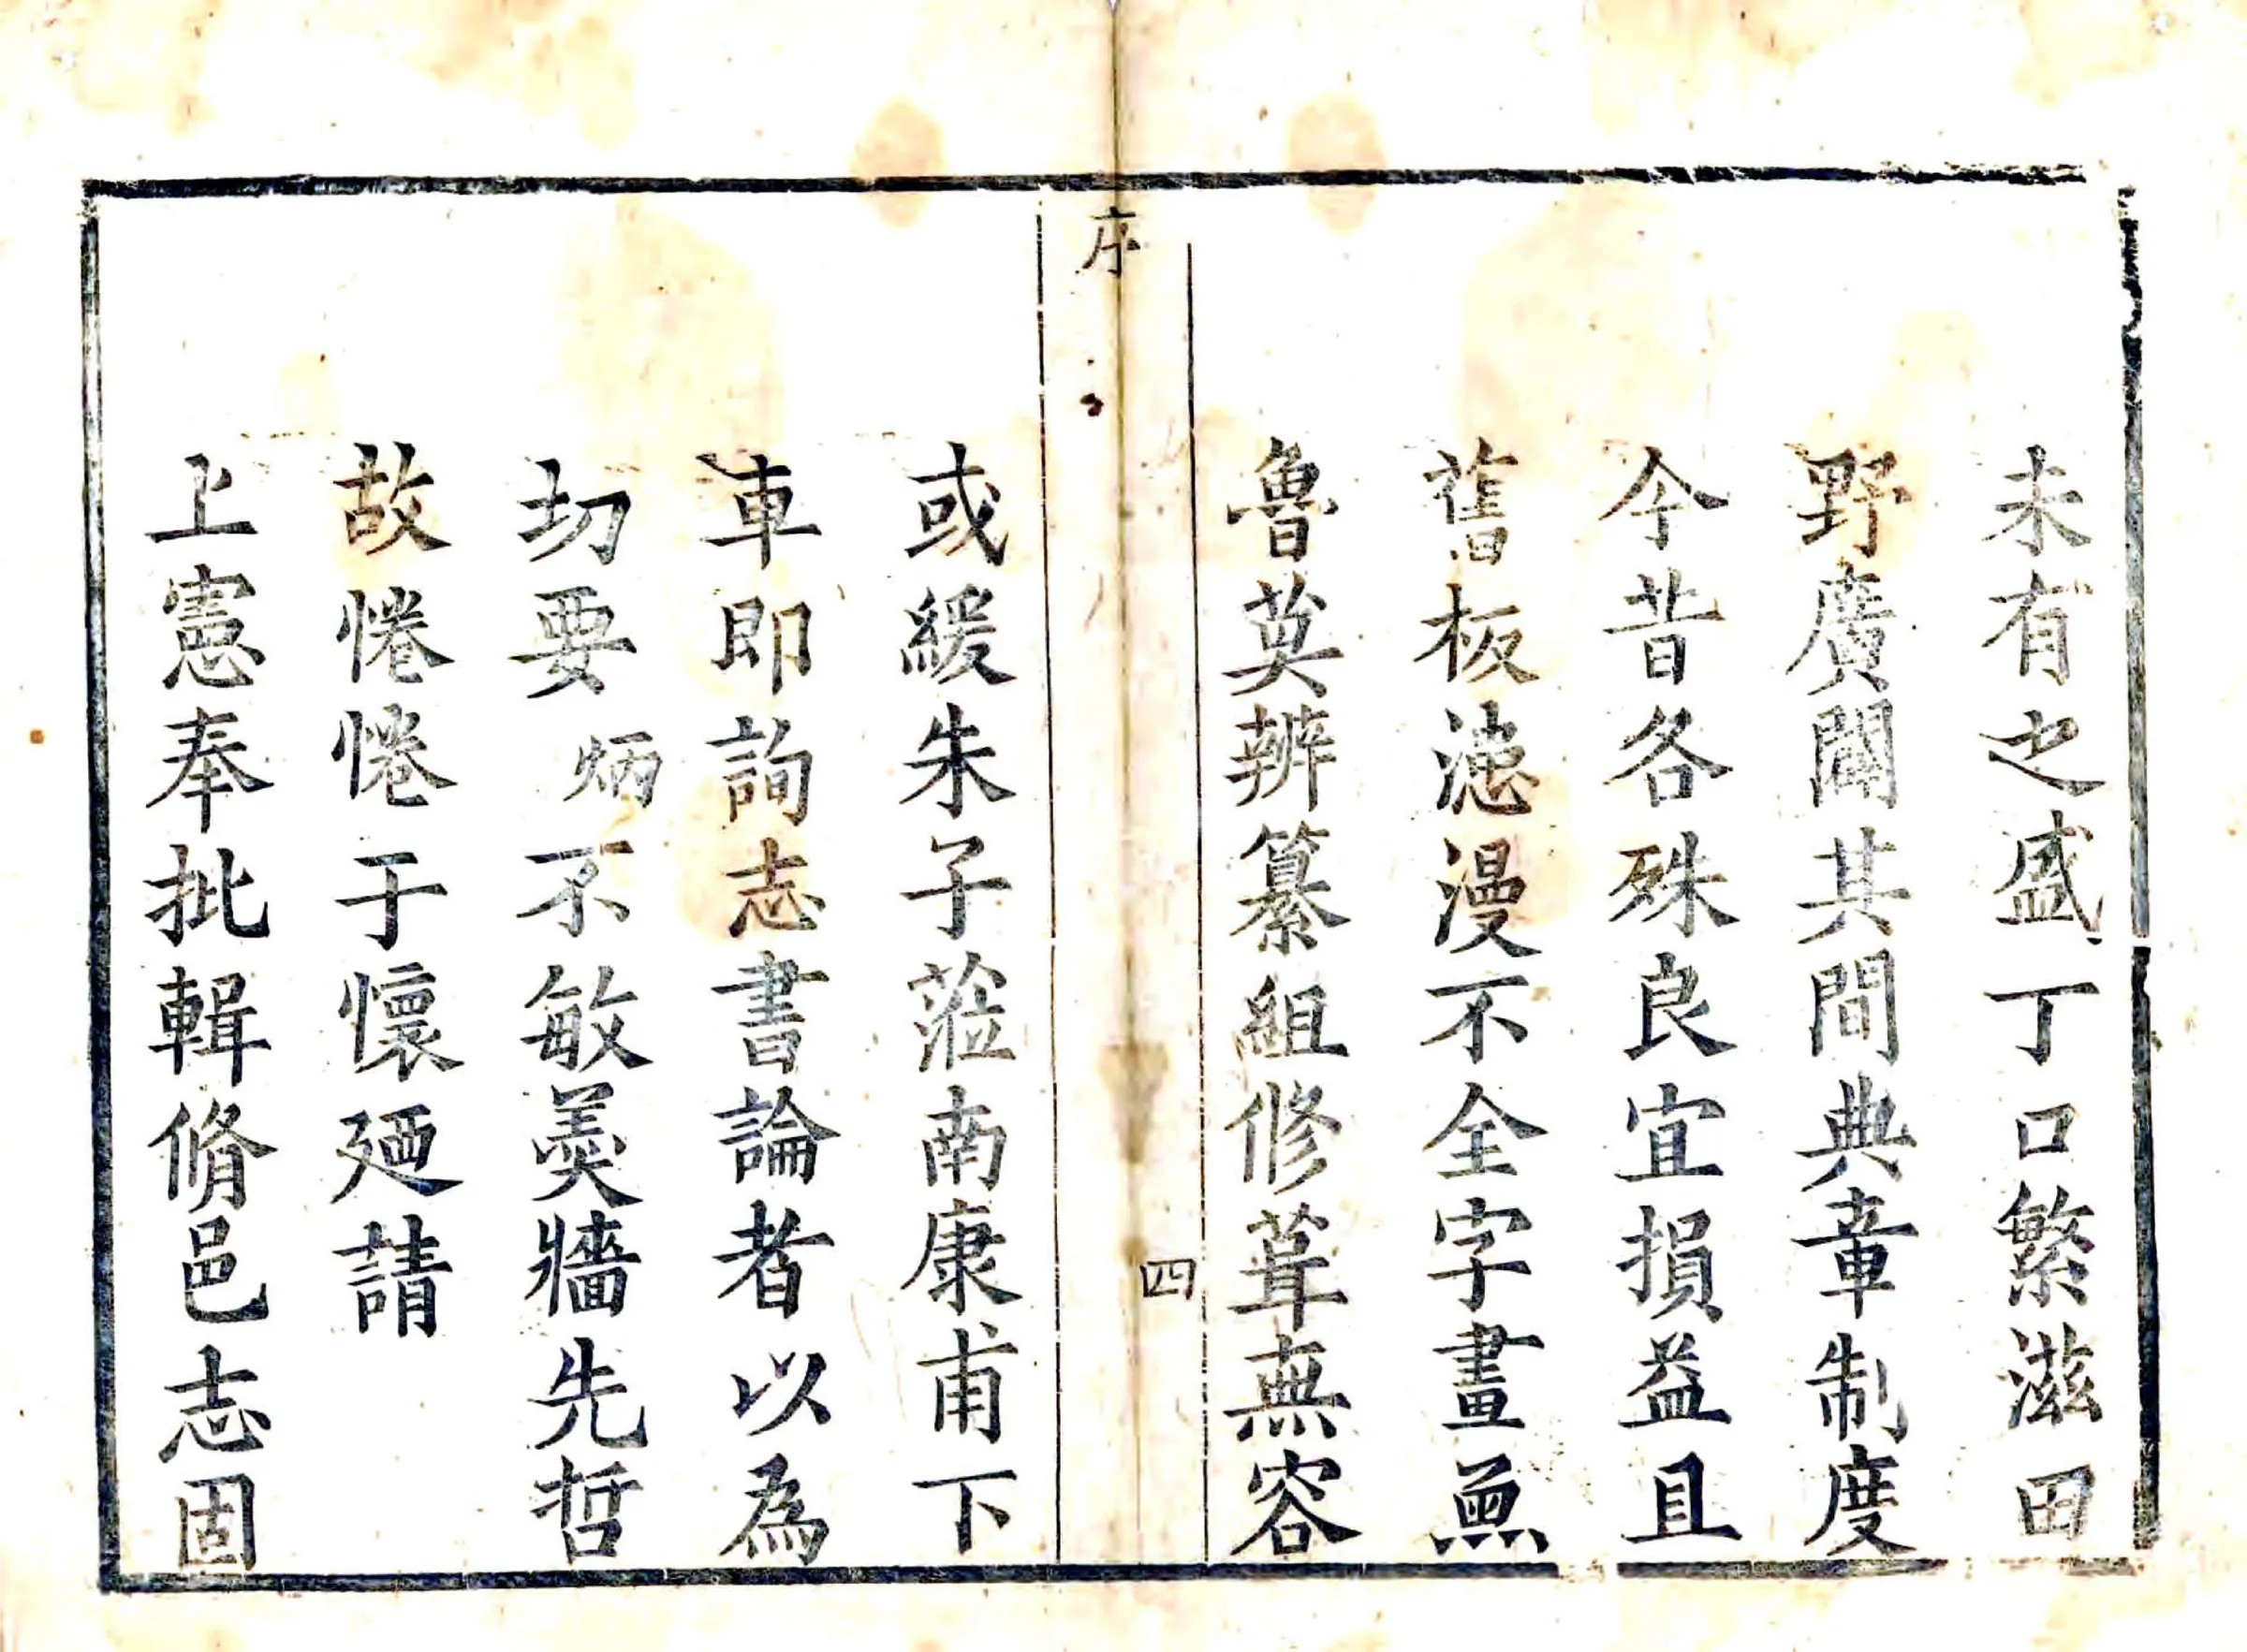 未有之盛丁口繁滋田
野廣闢其間典章制度
今昔各殊良宜損益且
舊板漶漫不全字畫魚
魯莫辨纂組修葺無容
序
四
或緩朱子蒞南康甫下
車即詢志書論者以為
切要炳不敏羹牆先哲
故惓惓于懷廼請
上憲奉批輯脩邑志固